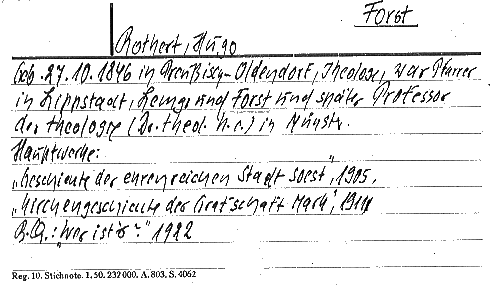 Forst
Rothert, Hugo
Geb. 27.10.1846 in Preußisch-Oldendorf, Theologe, war Pfarrer
in Lippstadt, Lemgo und Forst und später Professor
der Theologie (Dr. theol. h.c.) in Münster.
Hauptwerke:
„Geschichte der ehrenreichen Stadt Soest", 1905.
„Kirchengeschichte der Grafschaft Mark", 1914
B.Q.: „Wer ist's?" 1922
Reg. 10. Stichnote. 1, 50. 232 000. A. 803, S. 4062